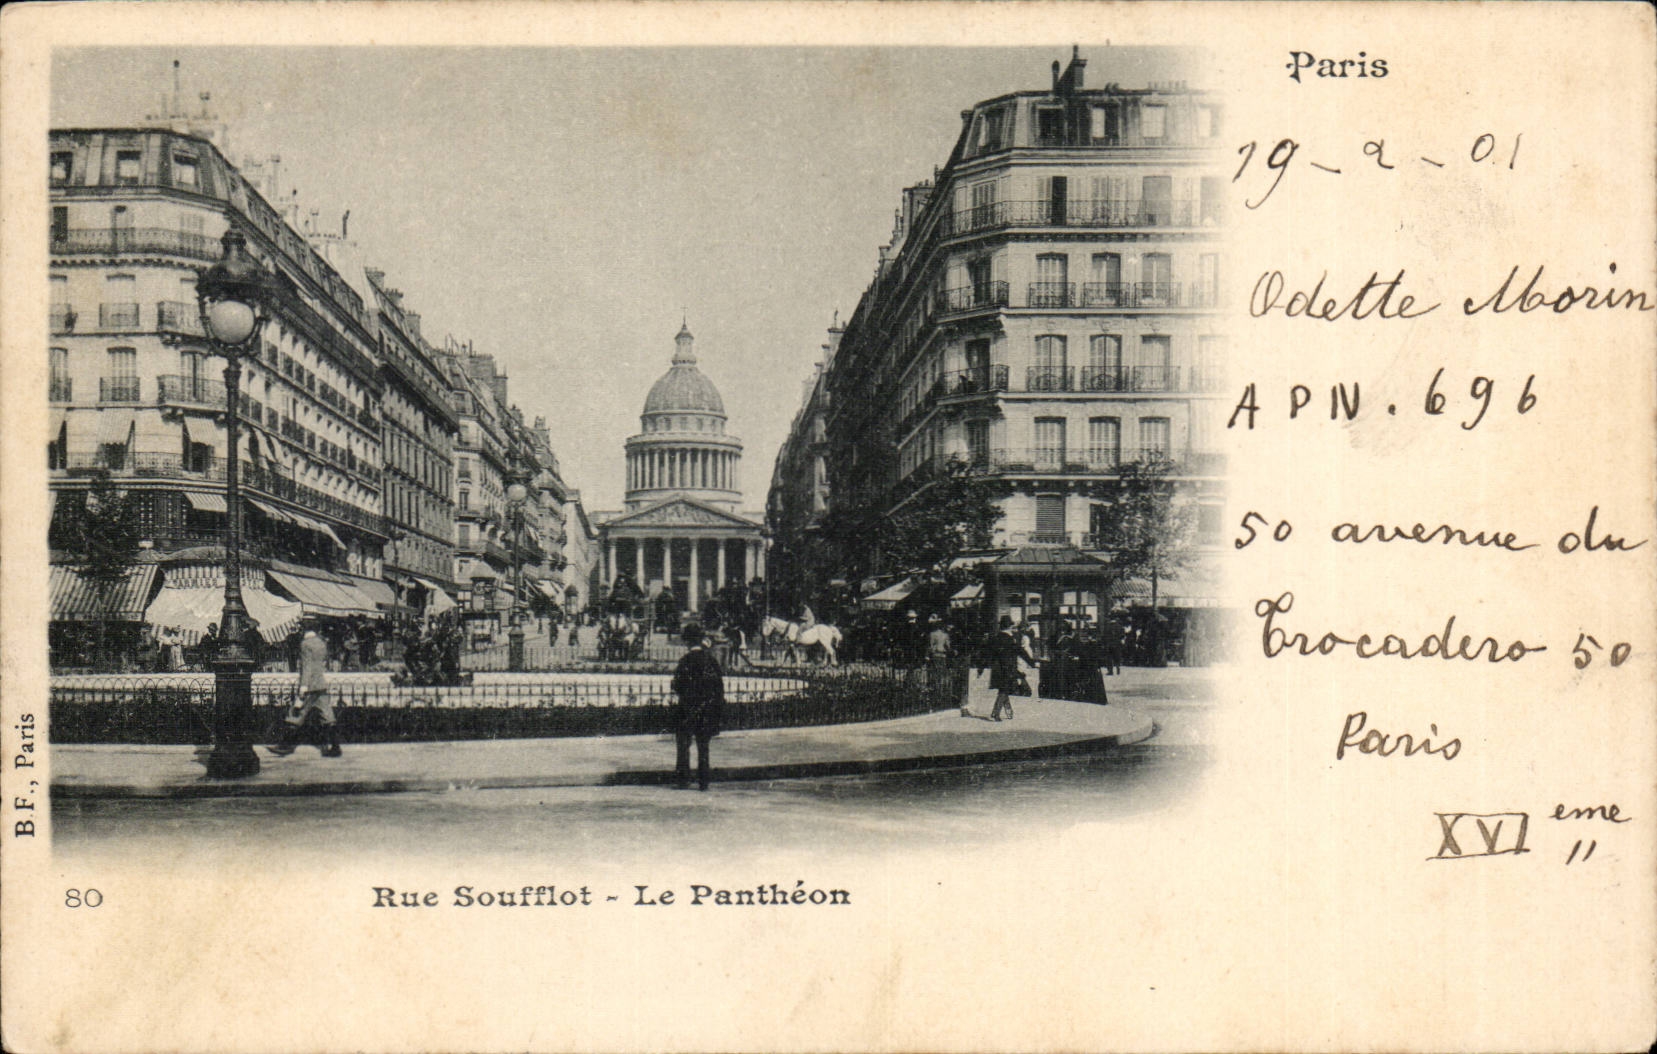 Paris
19-2-01
Odette Morin
APN. 696
50 avenue du
Trocadero 50
Paris
XVI eme
"
B.F., Paris
80
Rue Soufflot - Le Panthéon